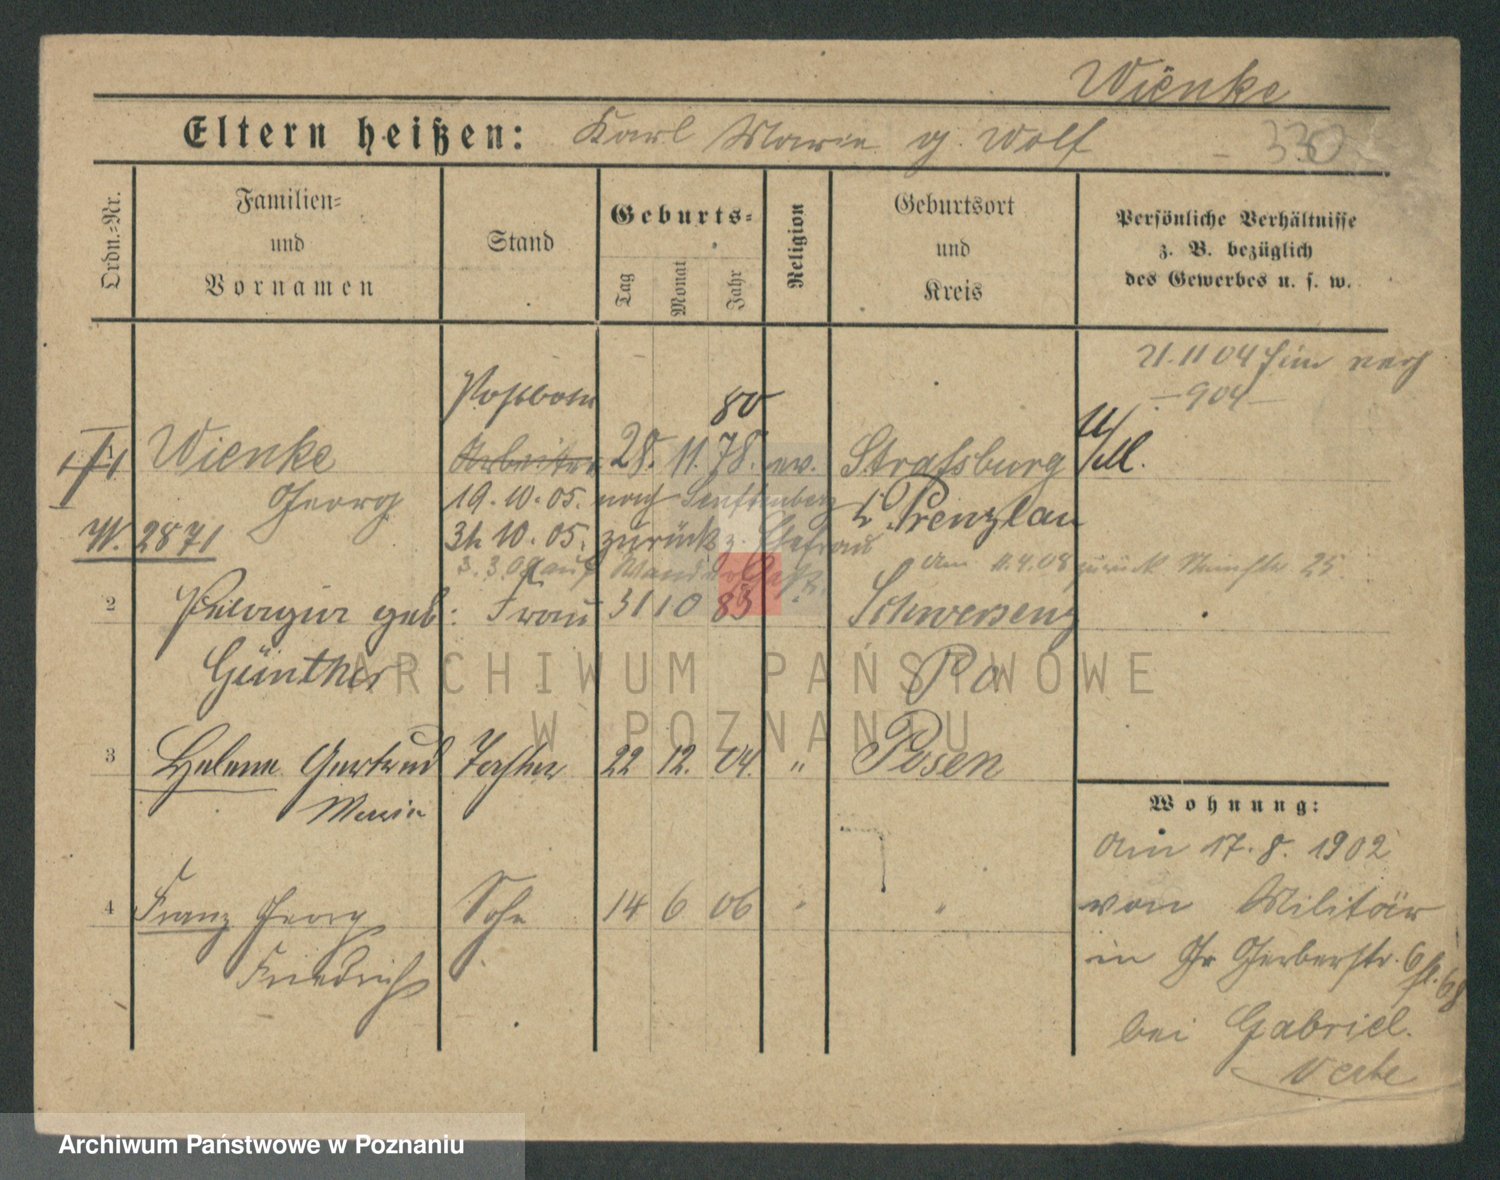 Wienke
Eltern heißen: Karl Marie g. Wolf
330
Ordn.=Nr.
Familien=
und
Vornamen
Stand
Geburts=
Tag
Monat
Jahr
Religion
Geburtsort
und
Kreis
Persönliche Verhältnisse
z. B. bezüglich
des Gewerbes u. s. w.
21.11 04
904
80
1 Wienke Arbeiter 28. 11. 78. ev. Strafsburg
Georg 19. 10. 05. nach Senftenberg
Prenzlau
W. 2871
31. 10. 05. zurück z. Ehefrau
3. 3. 08 auf
am 11.4.08 zurück 25
2 Pelagia geb: Frau 31 10 83 Schwersenz
Günther Po
3 Helene Gertrud Tochter 22 12. 04. " Posen
Maria
Wohnung:
am 17. 8. 1902
von Militär
4 Franz Georg Sohn 14 6 06 " "
in Gr Gerberstr. 6
Friedrich
bei Gabriel.
ARCHIWUM PAŃSTWOWE
W POZNANIU
Archiwum Państwowe w Poznaniu